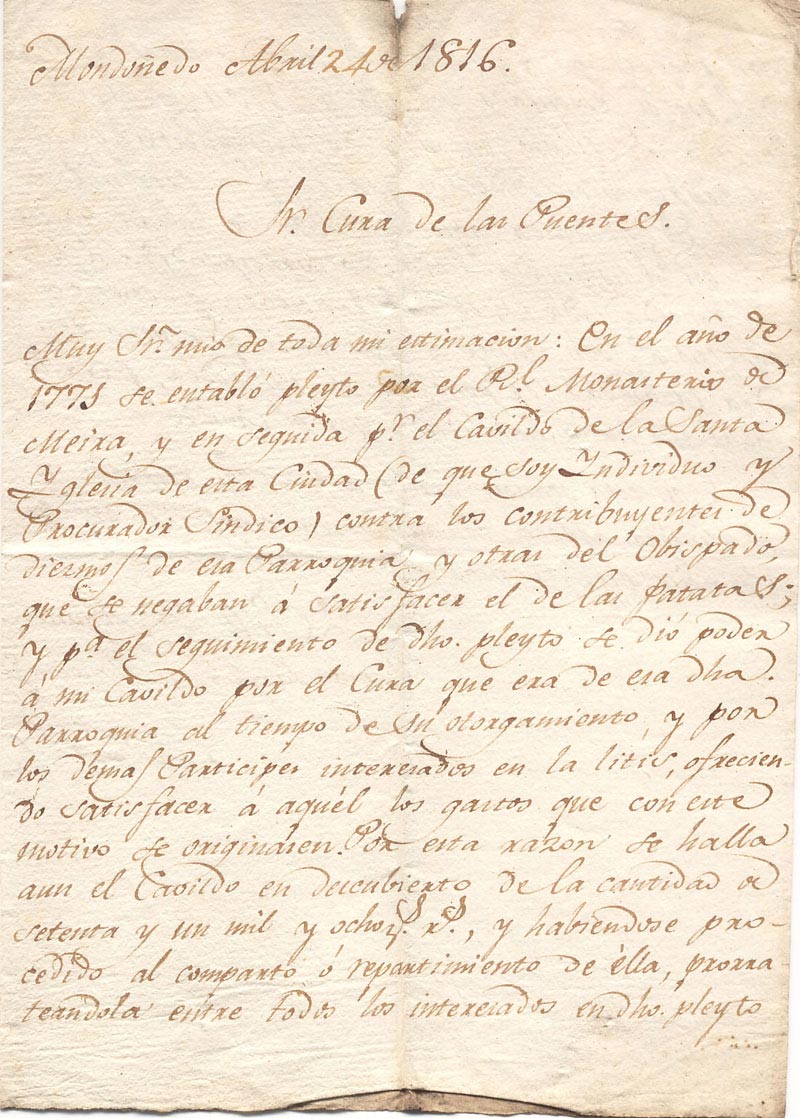 Mondoñedo Abril 24 de 1816.
Sr. Cura de las Puentes.
Muy Sr. mio de toda mi estimacion: En el año de
1775 se entabló pleyto por el Rl. Monasterio de
Meira, y en seguida pr. el Cavildo de la Santa
Yglesia de esta Ciudad (de que soy Yndividuo y
Procurador Sindico) contra los contribuyentes de
diezmos de esa Parroquia y otras del Obispado,
que se negaban á satisfacer el de las Patatas;
y pa. el seguimiento de dho. pleyto se dió poder
á mi Cavildo por el Cura que era de esa dha.
Parroquia al tiempo de su otorgamiento, y por
los demas Participes interesados en la litis, ofrecien-
do satisfacer á aquél los gastos que con este
motivo se originasen. Por esta razon se halla
aun el Cavildo en descubierto de la cantidad de
setenta y un mil y ochos. rs., y habiendose pro-
cedido al comparto ó repartimiento de élla, prorra-
teandola entre todos los interesados en dho. pleyto